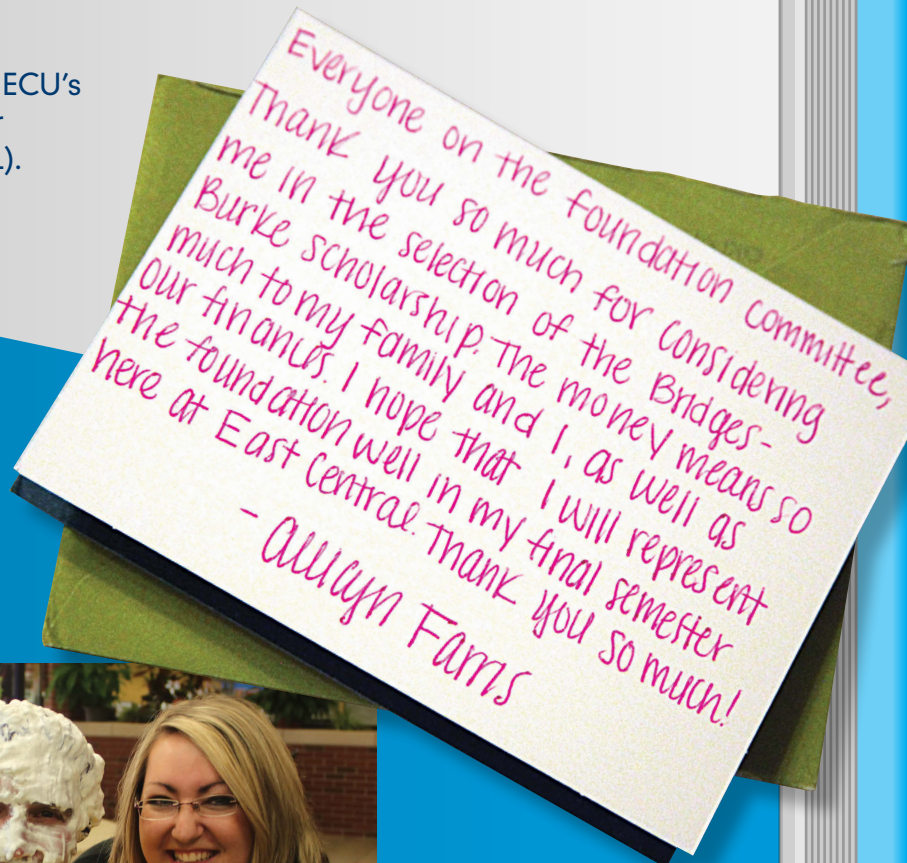 ECU's
r
).
Everyone on the foundation committee,
Thank you so much for considering
me in the selection of the Bridges-
Burke scholarship. The money means so
much to my family and I, as well as
our finances. I hope that I will represent
the foundation well in my final semester
here at East Central. Thank you so much!
- Allicyn Farris